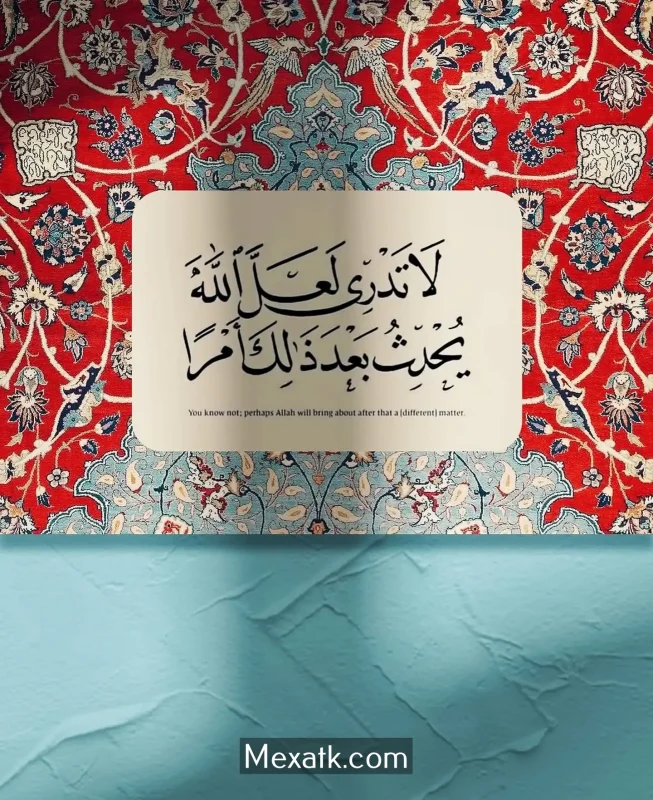 لَا تَدْرِى لَعَلَّ ٱللَّهَ
يُحْدِثُ بَعْدَ ذَٰلِكَ أَمْرًا
You know not; perhaps Allah will bring about after that a [different] matter.
Mexatk.com